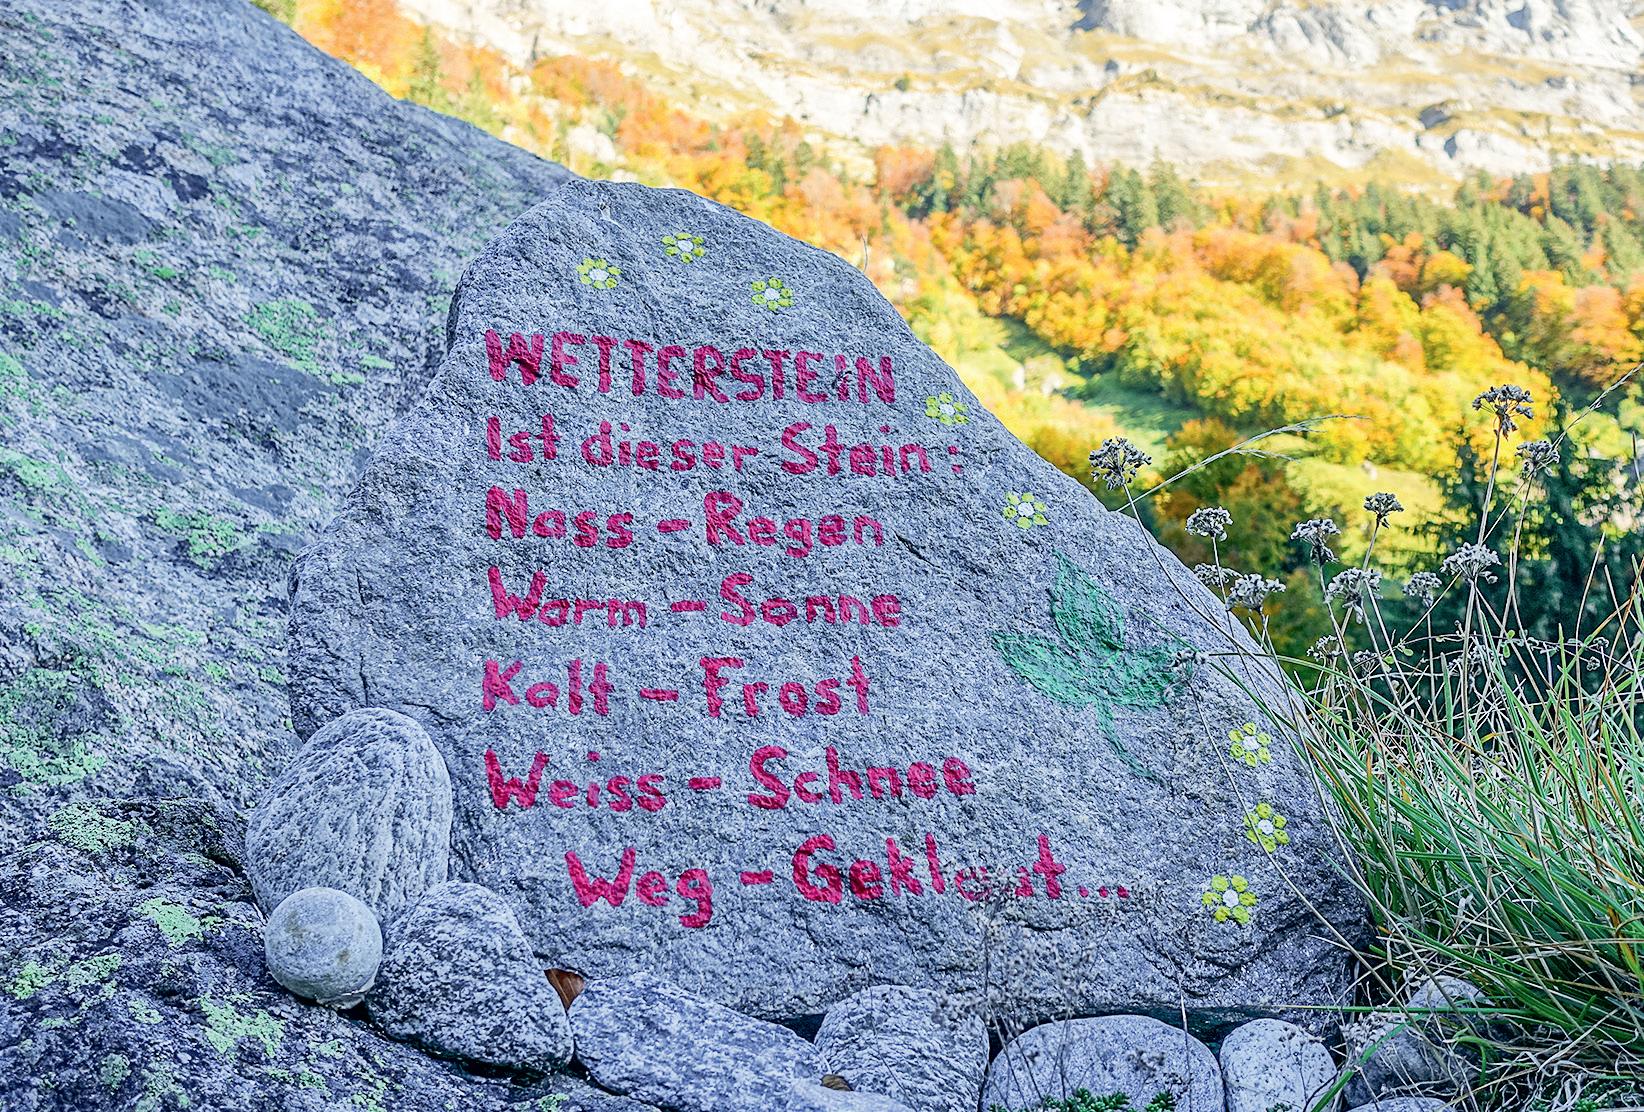 WETTERSTEIN
Ist dieser Stein:
Nass - Regen
Warm - Sonne
Kalt - Frost
Weiss - Schnee
Weg -